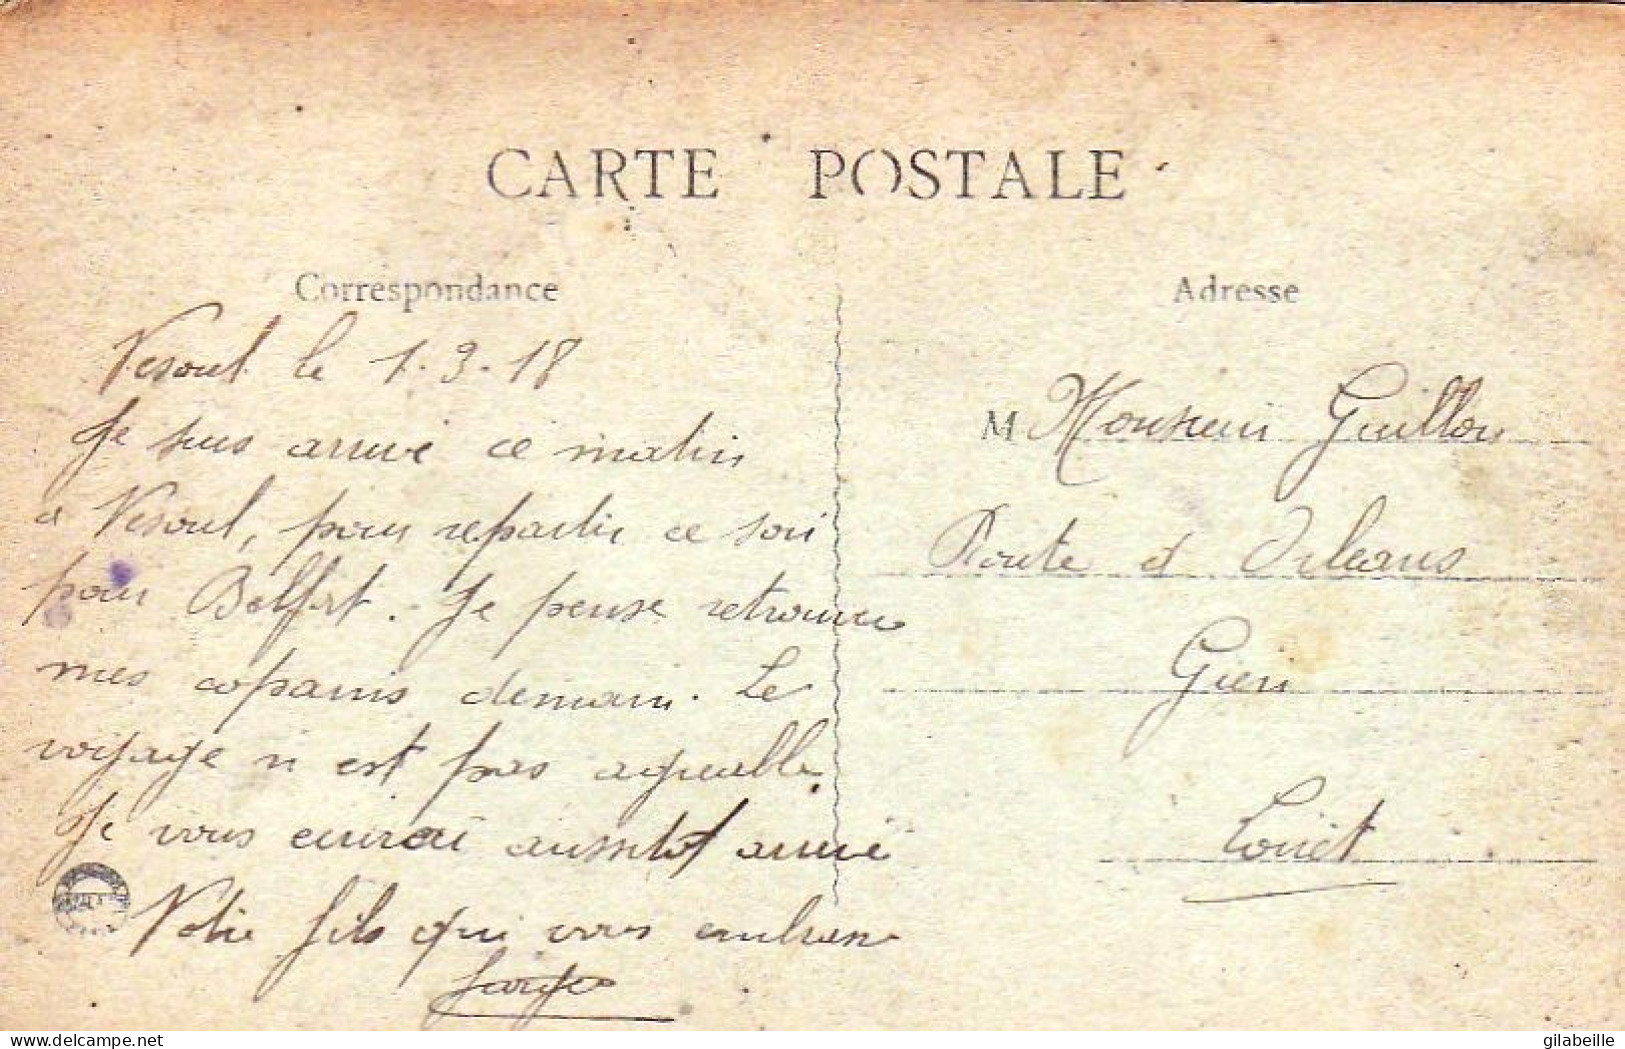 CARTE POSTALE
Correspondance
Vesoul le 1.3.18
Je suis arrivé ce matin
a Vesoul, pour repartir ce soir
pour Belfort. Je pense retrouver
mes copains demain. Le
voyage n est pas agreable.
Je vous ecrirai aussitot arrivé
Votre fils qui vous embrasse
Adresse
M Monsieur Guillon
Route d Orleans
Gien
Loiret
delcampe.net
gilabeille